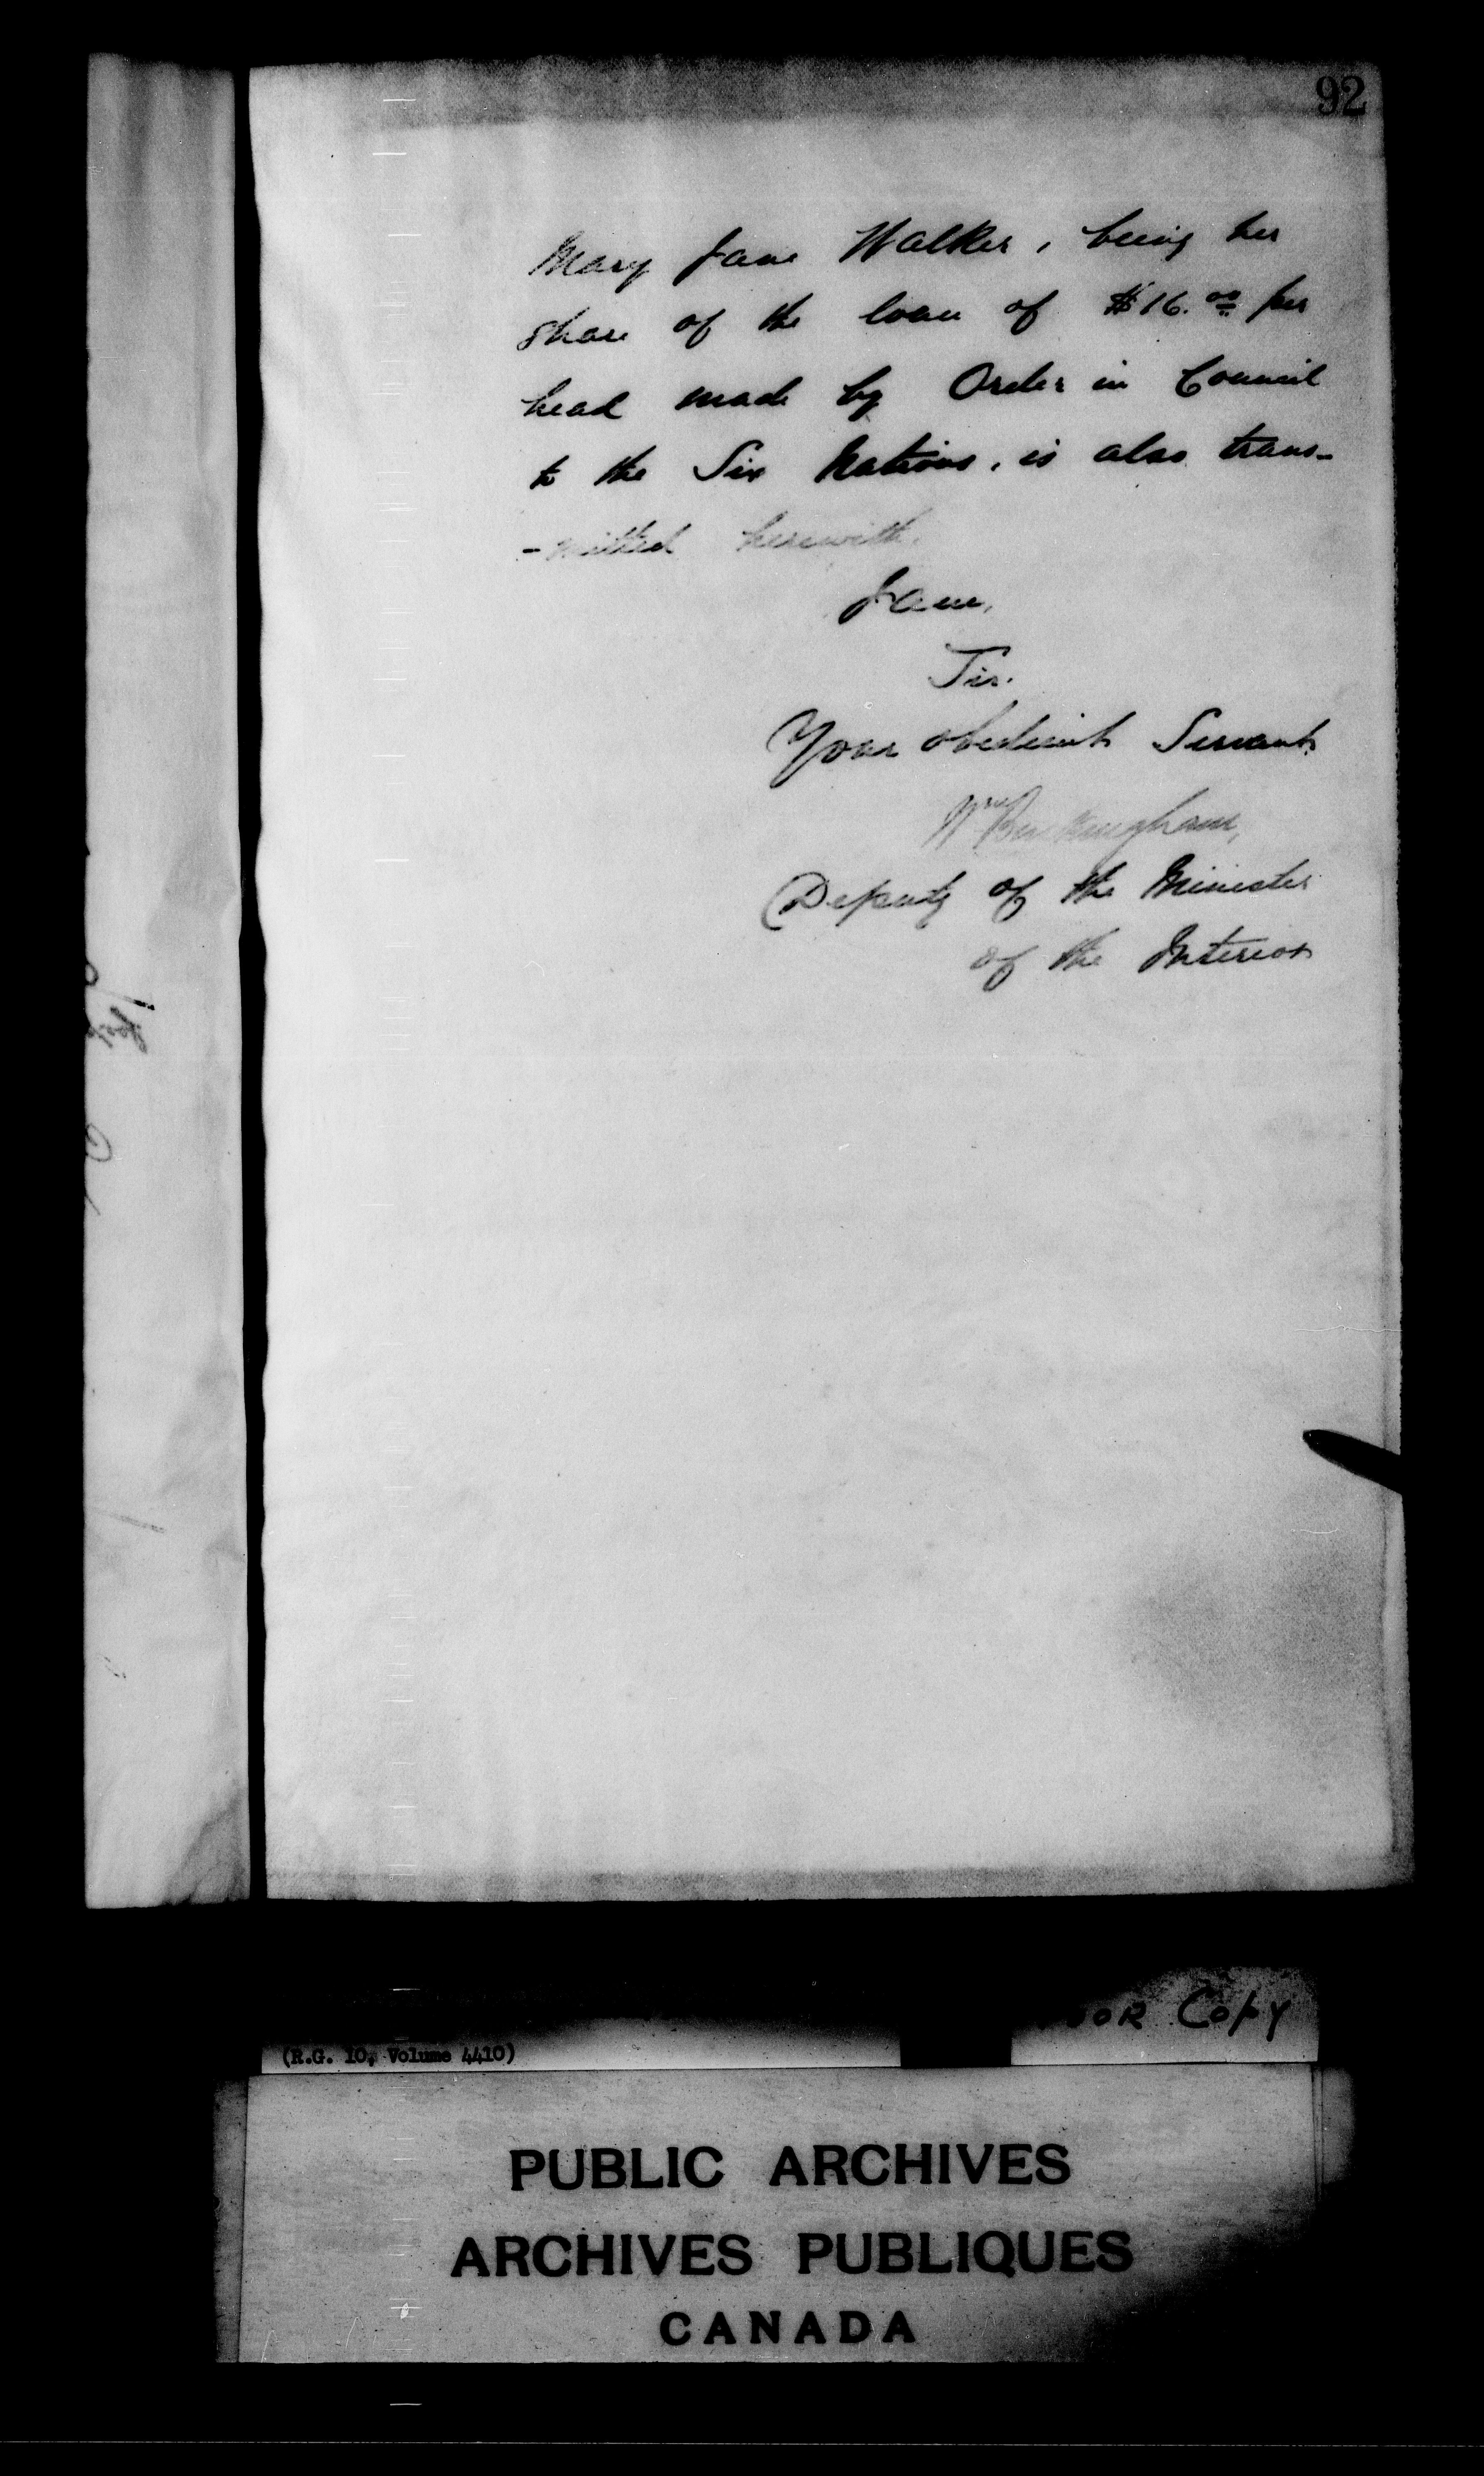 92
Mary Jane Walker, being her
share of the loan of $16.00 per
head made by Order in Council
to the Six Nations, is also trans-
-mitted herewith.
I am,
Sir.
Your obedient Servant
Wm Buckingham,
Deputy of the Minister
of the Interior
Copy
(R.G. 10, Volume 4410)
PUBLIC ARCHIVES
ARCHIVES PUBLIQUES
CANADA